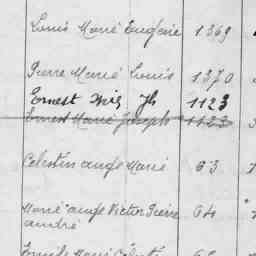 Louis Marie Eugène 1369
Pierre Marie Louis 1370
Ernest Jh 1123
Ernest Marie Joseph 1123
Celestin ange Marie 63
Marie ange Victor Pierre 64
andré
Marie